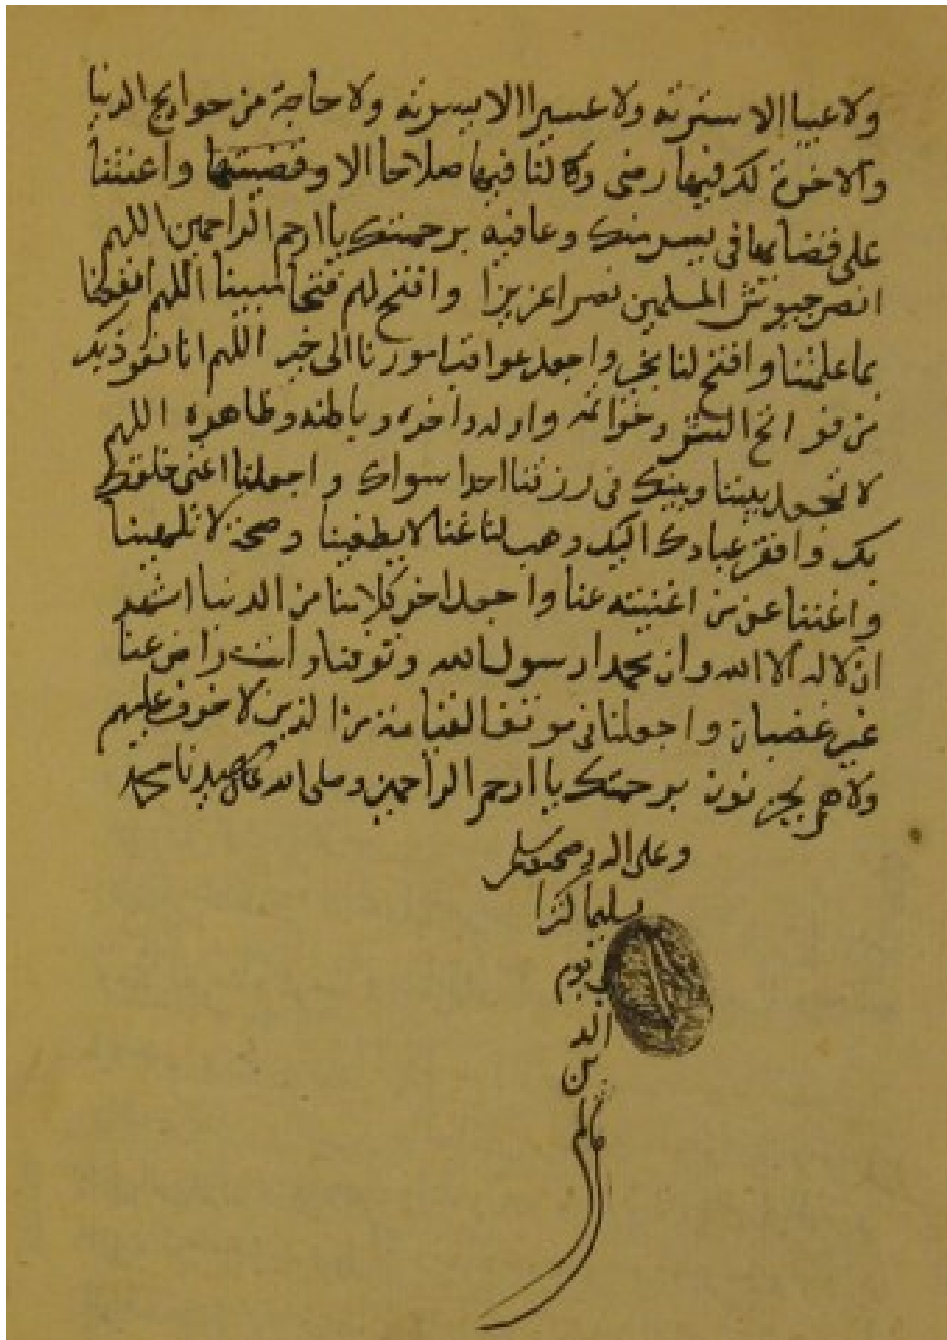 ولا عيبا الا سترته ولا عسيرا الا يسرته ولا حاجة من حوايج الدنيا
والاخرة لك فيها رضى ولنا فيها صلاحا الا وقضيتها واعنتنا
على قضايها في يسر منك وعافيه برحمتك يا ارحم الراحمين اللهم
انصر جيوش المسلمين نصرا عزيزا وافتح لهم فتحا مبينا اللهم انفعنا
بما علمتنا وافتح لنا بخير واجعل عواقب امورنا الى خير اللهم انا نعوذ بك
من فواتح الشر وخواتمه واوله واخره وباطنه وظاهره اللهم
لا تجعل بيننا وبينك في رزقنا احدا سواك واجعلنا اغنى خلقك
بك وافقر عبادك اليك وهب لنا غنا لا يطغينا وصحة لا تلهينا
واغننا عن من اغنيته عنا واجعل اخر كلامنا من الدنيا اشهد
ان لا اله الا الله وان محمدا رسول الله وتوفنا وانت راض عنا
غير غضبان واجعلنا في موقف القيامة من الذين لا خوف عليهم
ولا هم يحزنون برحمتك يا ارحم الراحمين وصلى الله على سيدنا محمد
وعلى اله وصحبه وسلم
تسليما كثيرا
يوم
الد
ين